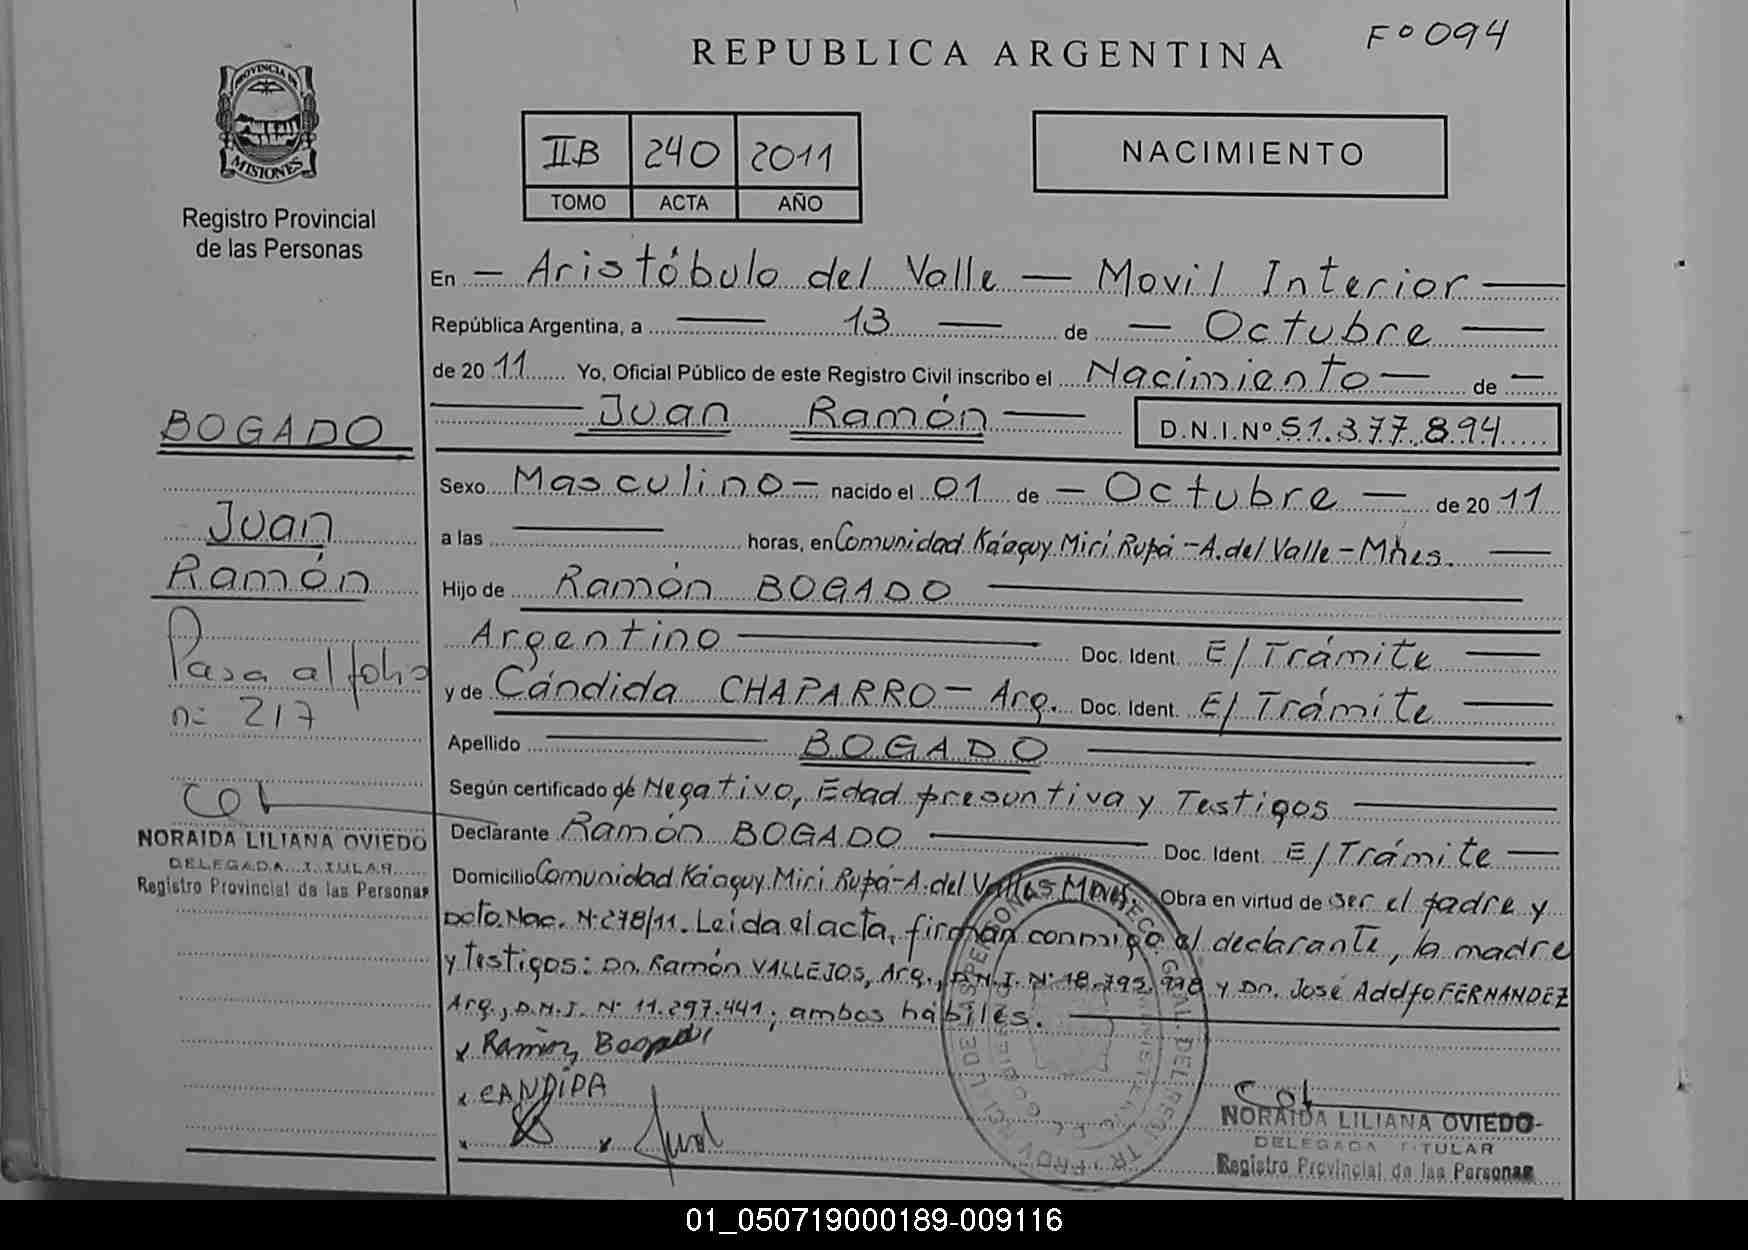 Fº 094
REPUBLICA ARGENTINA
PROVINCIA DE
MISIONES
Registro Provincial
de las Personas
IIB 240 2011
TOMO ACTA AÑO
NACIMIENTO
En — Aristóbulo del Valle — Movil Interior —
República Argentina, a — 13 — de — Octubre —
de 2011 Yo, Oficial Público de este Registro Civil inscribo el Nacimiento — de —
— Juan Ramón — D.N.I.Nº 51.377.894
Sexo Masculino — nacido el 01 de — Octubre — de 2011
a las — horas, en Comunidad Ká'aguy Mirí Rupá - A. del Valle - Mnes. —
Hijo de Ramón BOGADO —
Argentino — Doc. Ident. E/Trámite —
y de Cándida CHAPARRO — Arg. Doc. Ident. E/Trámite —
Apellido — BOGADO —
Según certificado de Negativo, Edad presuntiva y Testigos —
Declarante Ramón BOGADO — Doc. Ident. E/Trámite —
Domicilio Comunidad Ká'aguy Mirí Rupá - A. del Valle - Mnes. Obra en virtud de ser el padre y
Dcto. Nac. Nº 278/11. Leída el acta, firman conmigo el declarante, la madre
y testigos: Dn. Ramón VALLEJOS, Arg., D.N.I. Nº 18.795. y Dn. José Adolfo FERNANDEZ
Arg., D.N.I. Nº 11.297.441; ambos hábiles. —
x Ramón Bogado
x CANDIDA
x x
NORAIDA LILIANA OVIEDO
DELEGADA TITULAR
Registro Provincial de las Personas
BOGADO
Juan
Ramón
Pasa al folio
nº 217
NORAIDA LILIANA OVIEDO
DELEGADA TITULAR
Registro Provincial de las Personas
01_050719000189-009116